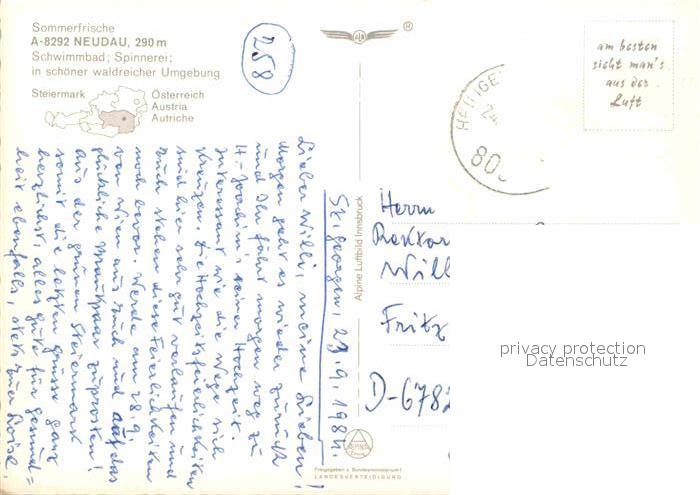 Sommerfrische
A-8292 NEUDAU, 290 m
Schwimmbad; Spinnerei;
in schöner waldreicher Umgebung
Steiermark
Österreich
Austria
Autriche
258
®
am besten
sieht man's
aus der
Luft
HEILIGE
80
St. Georgen, 23.9.1984.
Lieber Willi, meine Lieben!
Morgen geht es wieder zurück
und Ihr fährt morgen weg zu
H.-Joachim, seiner Hochzeit.
Interessant wie die Wege sich
kreuzen. Die Hochzeitsfeierlichkeiten
sind hier sehr gut verlaufen und
Euch stehen diese Feierlichkeiten
noch bevor. Werde am 28.9.
von Wien aus Euch und auf das
glückliche Brautpaar zuprosten!
Aus der grünen Steiermark
somit die letzten Grüsse ganz
herzlichst, alles gute für Gesund=
heit ebenfalls, stets Euer
Alpine Luftbild Innsbruck
Herrn
Rektor
Will
Fritz
D-6782
privacy protection
Datenschutz
ALPINE
Freigegeben v. Bundesministerium f.
LANDESVERTEIDIGUNG